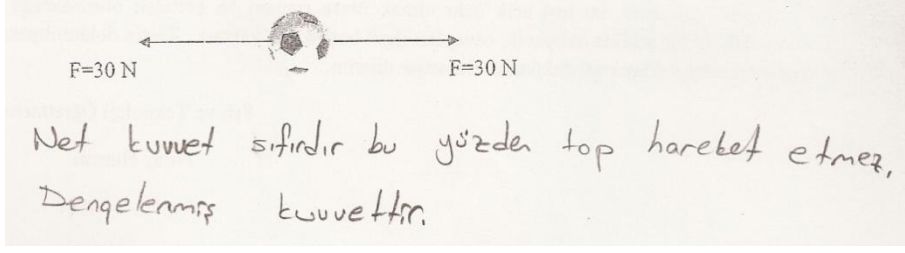 F=30 N F=30 N
Net kuvvet sıfırdır bu yüzden top hareket etmez.
Dengelenmiş kuvvettir.